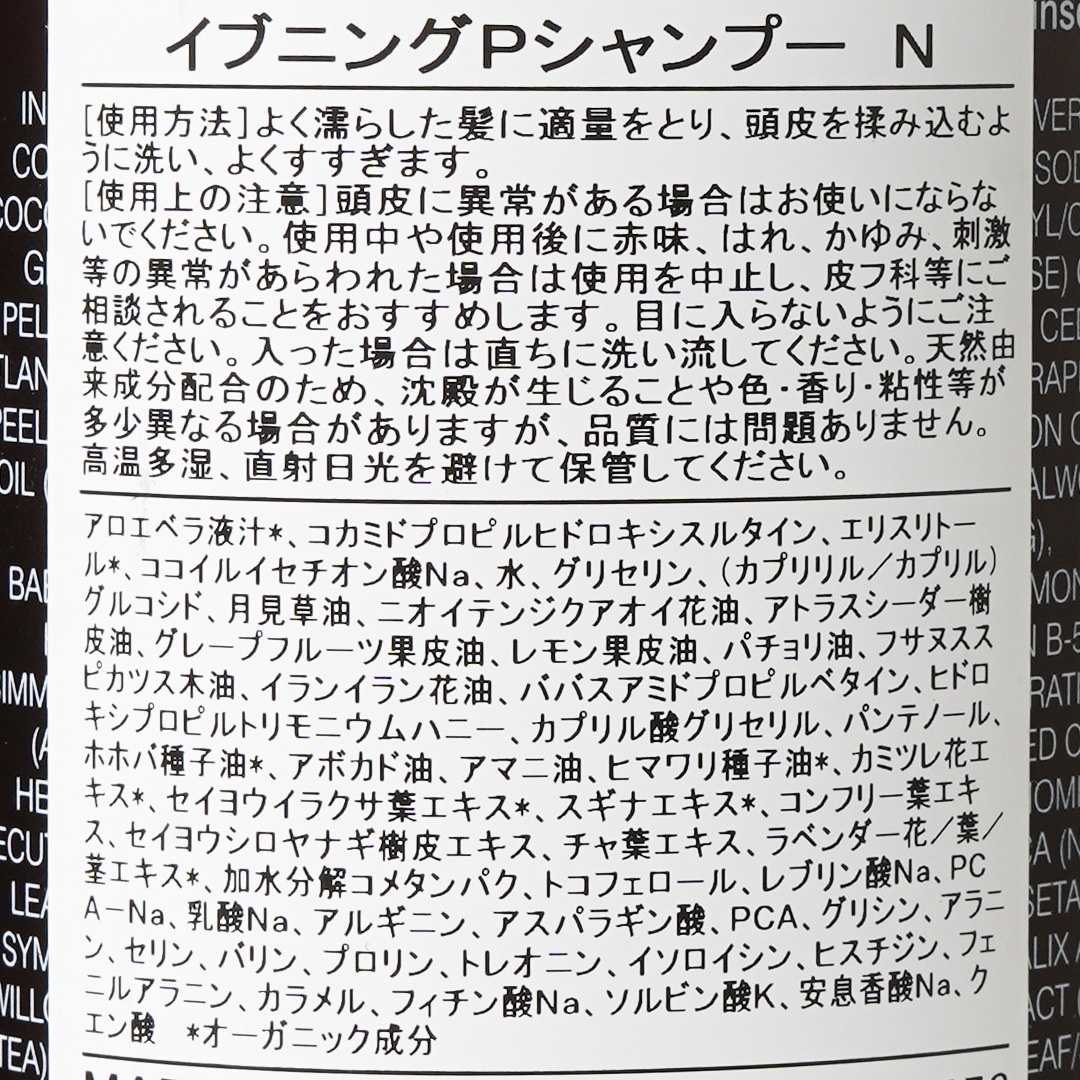 イブニングPシャンプー N
[使用方法]よく濡らした髪に適量をとり、頭皮を揉み込むよ
うに洗い、よくすすぎます。
[使用上の注意]頭皮に異常がある場合はお使いにならな
いでください。使用中や使用後に赤味、はれ、かゆみ、刺激
等の異常があらわれた場合は使用を中止し、皮フ科等にご
相談されることをおすすめします。目に入らないようにご注
意ください。入った場合は直ちに洗い流してください。天然由
来成分配合のため、沈殿が生じることや色・香り・粘性等が
多少異なる場合がありますが、品質には問題ありません。
高温多湿、直射日光を避けて保管してください。
アロエベラ液汁*、コカミドプロピルヒドロキシスルタイン、エリスリトー
ル*、ココイルイセチオン酸Na、水、グリセリン、(カプリリル/カプリル)
グルコシド、月見草油、ニオイテンジクアオイ花油、アトラスシーダー樹
皮油、グレープフルーツ果皮油、レモン果皮油、パチョリ油、フサヌスス
ピカツス木油、イランイラン花油、ババスアミドプロピルベタイン、ヒドロ
キシプロピルトリモニウムハニー、カプリル酸グリセリル、パンテノール、
ホホバ種子油*、アボカド油、アマニ油、ヒマワリ種子油*、カミツレ花エ
キス*、セイヨウイラクサ葉エキス*、スギナエキス*、コンフリー葉エキ
ス、セイヨウシロヤナギ樹皮エキス、チャ葉エキス、ラベンダー花/葉/
茎エキス*、加水分解コメタンパク、トコフェロール、レブリン酸Na、PC
A-Na、乳酸Na、アルギニン、アスパラギン酸、PCA、グリシン、アラニ
ン、セリン、バリン、プロリン、トレオニン、イソロイシン、ヒスチジン、フェ
ニルアラニン、カラメル、フィチン酸Na、ソルビン酸K、安息香酸Na、ク
エン酸 *オーガニック成分